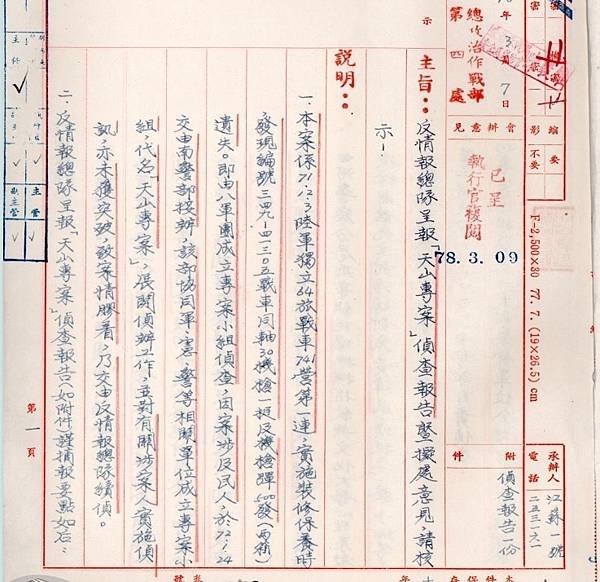 年3月7日
總政治作戰部
第四處
示
會辦意見
已呈
執行官複閱
78.3.09
影 不要
編 要
F-2,500×30 77.7.(19×26.5)cm
承辦人 江蘇一號
電話 二五三一六一
附件 偵查報告一份
主旨：反情報總隊呈報「天山專案」偵查報告暨擬處意見，請核
示！
說明：
一、本案係71.2.3陸軍獨立64旅戰車741營第一連，實施裝修保養時
發現編號三四九-四一三〇五戰車同軸30機槍一挺及機槍彈500發(兩箱)
遺失。即由八軍團成立專案小組偵查，因案涉及民人，於72.1.24
交由南警部接辦，該部協同軍、憲、警等相關單位成立專案小
組，代名「天山專案」，展開偵辦工作，並對有關涉案人實施偵
訊，亦未獲突破，致案情膠着，乃交由反情報總隊續偵。
二、反情報總隊呈報「天山專案」偵查報告(如附件)謹摘報要點如右：
第一頁
主任
主管
副主管